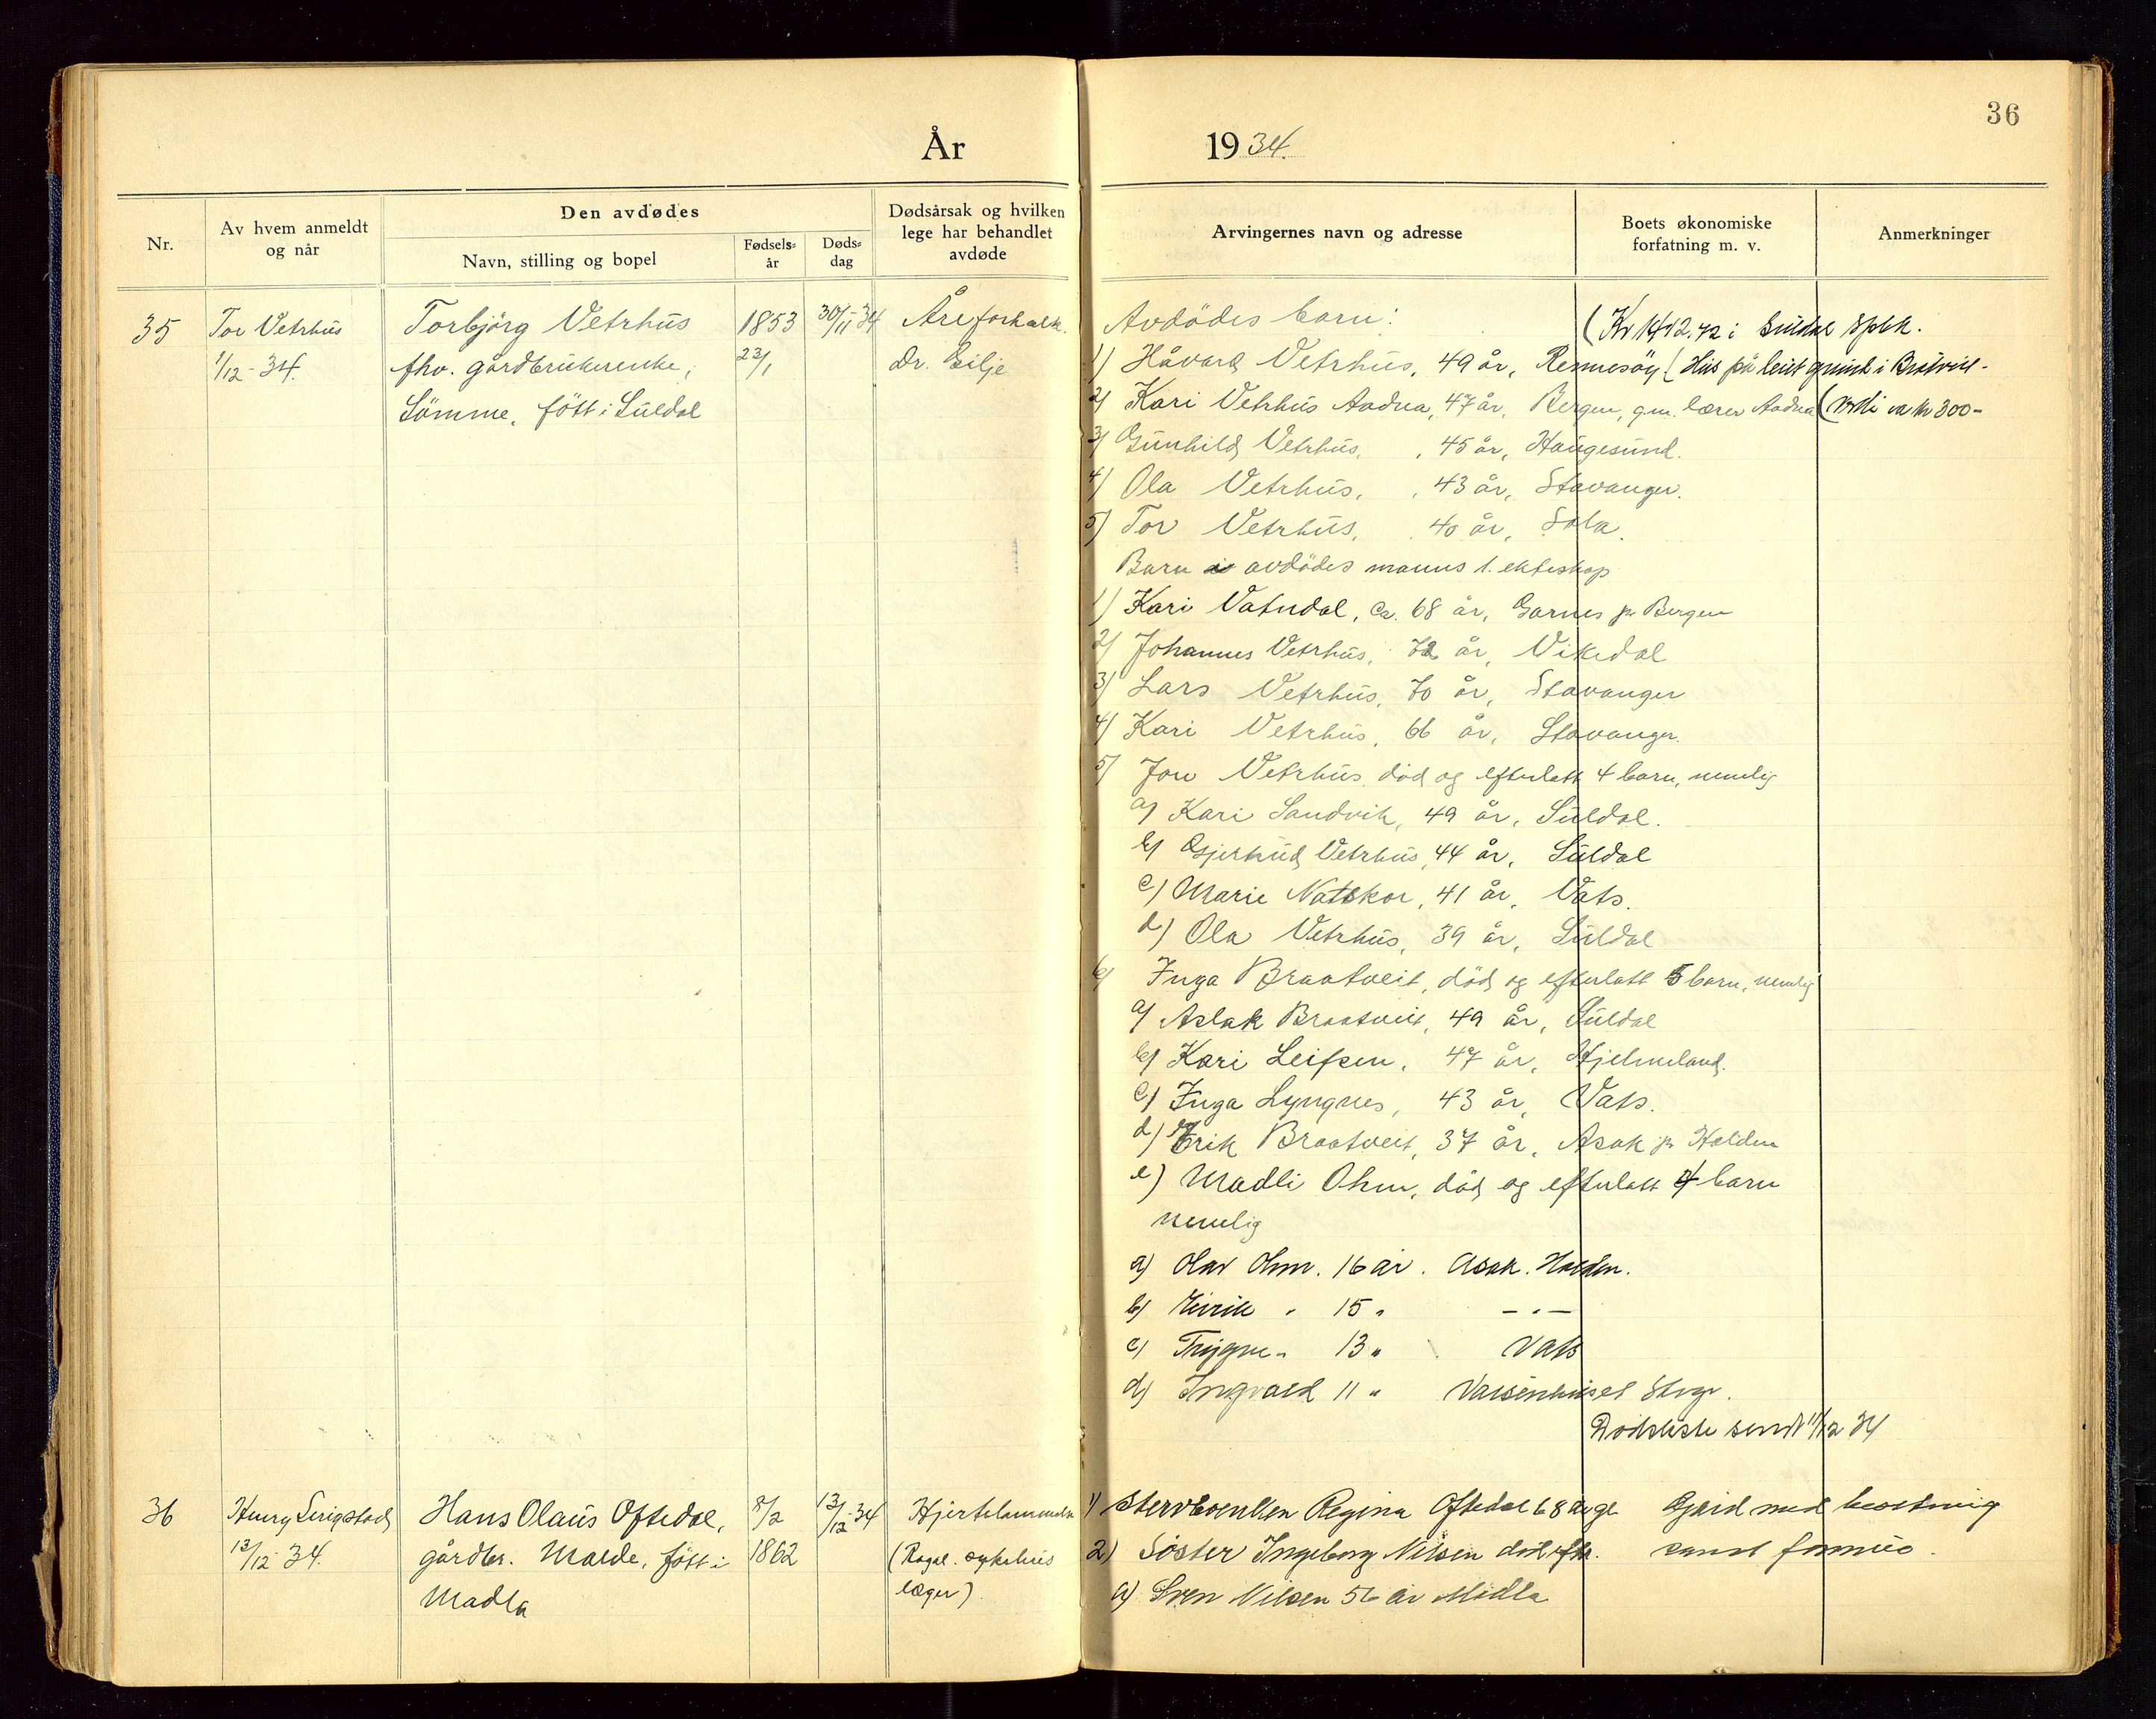 36
År 1934.
Nr.
Av hvem anmeldt og når
Den avdødes
Navn, stilling og bopel
Fødsels-år
Døds-dag
Dødsårsak og hvilken lege har behandlet avdøde
Arvingernes navn og adresse
Boets økonomiske forfatning m. v.
Anmerkninger
35
Tor Vetrhus
1/12-34.
Torbjörg Vetrhus
fhv. gårdbrukerenke,
Sömme, fött i Suldal
1853
23/1
30/11 34
Åreforkalk.
Dr. Eilje
Avdödes barn:
(Kr 1412.72 i Suldal spbk.
1) Håvard Vetrhus, 49 år, Rennesöy (Hus på leiet grunn i Bråtveit-
2) Kari Vetrhus Aadna, 47 år, Bergen, g.m. lærer Aadna (verdi ca kr 300-
3) Gunhild Vetrhus, 45 år, Haugesund.
4) Ola Vetrhus, 43 år, Stavanger.
5) Tor Vetrhus, 40 år, Sola.
Barn i avdödes manns 1. ekteskap
1) Kari Vatndal, ca. 68 år, Garnes pr Bergen
2) Johannes Vetrhus, 72 år, Vikedal
3) Lars Vetrhus, 70 år, Stavanger
4) Kari Vetrhus, 66 år, Stavanger.
5) Jon Vetrhus, död og efterlatt 4 barn, nemlig
a) Kari Sandvik, 49 år, Suldal.
b) Gjertrud Vetrhus, 44 år, Suldal
c) Marie Natskor, 41 år, Vats.
d) Ola Vetrhus, 39 år, Suldal
6) Inga Braatveit, död og efterlatt 5 barn, nemlig
a) Aslak Braatveit, 49 år, Suldal
b) Kari Leifsen, 47 år, Hjelmeland.
c) Inga Lyngnes, 43 år, Vats.
d) Erik Braatveit, 37 år, Asak pr Halden
e) Madli Ohm, död og efterlatt 4 barn
nemlig
a) Olav Ohm. 16 år. Asak. Halden.
b) Eirik " 15 " - " -
c) Trygve " 13 " Vats
d) Ingvald 11 " Vaisenhuset Stvgr.
Dödsliste sendt 11/12 34
36
Henry Serigstad
13/12 34.
Hans Olaus Oftedal,
gårdbr. Malde, fött i
Madla
8/2
1862
13/12-34
Hjertelammelse
(Rogal. sykehus
læger)
1) Stervboenken Regina Oftedal 68 år gl.
Gjeld med besetning
2) Söster Ingeborg Nilsen död eftr.
samt formue.
a) Sven Nilsen 56 år Madla